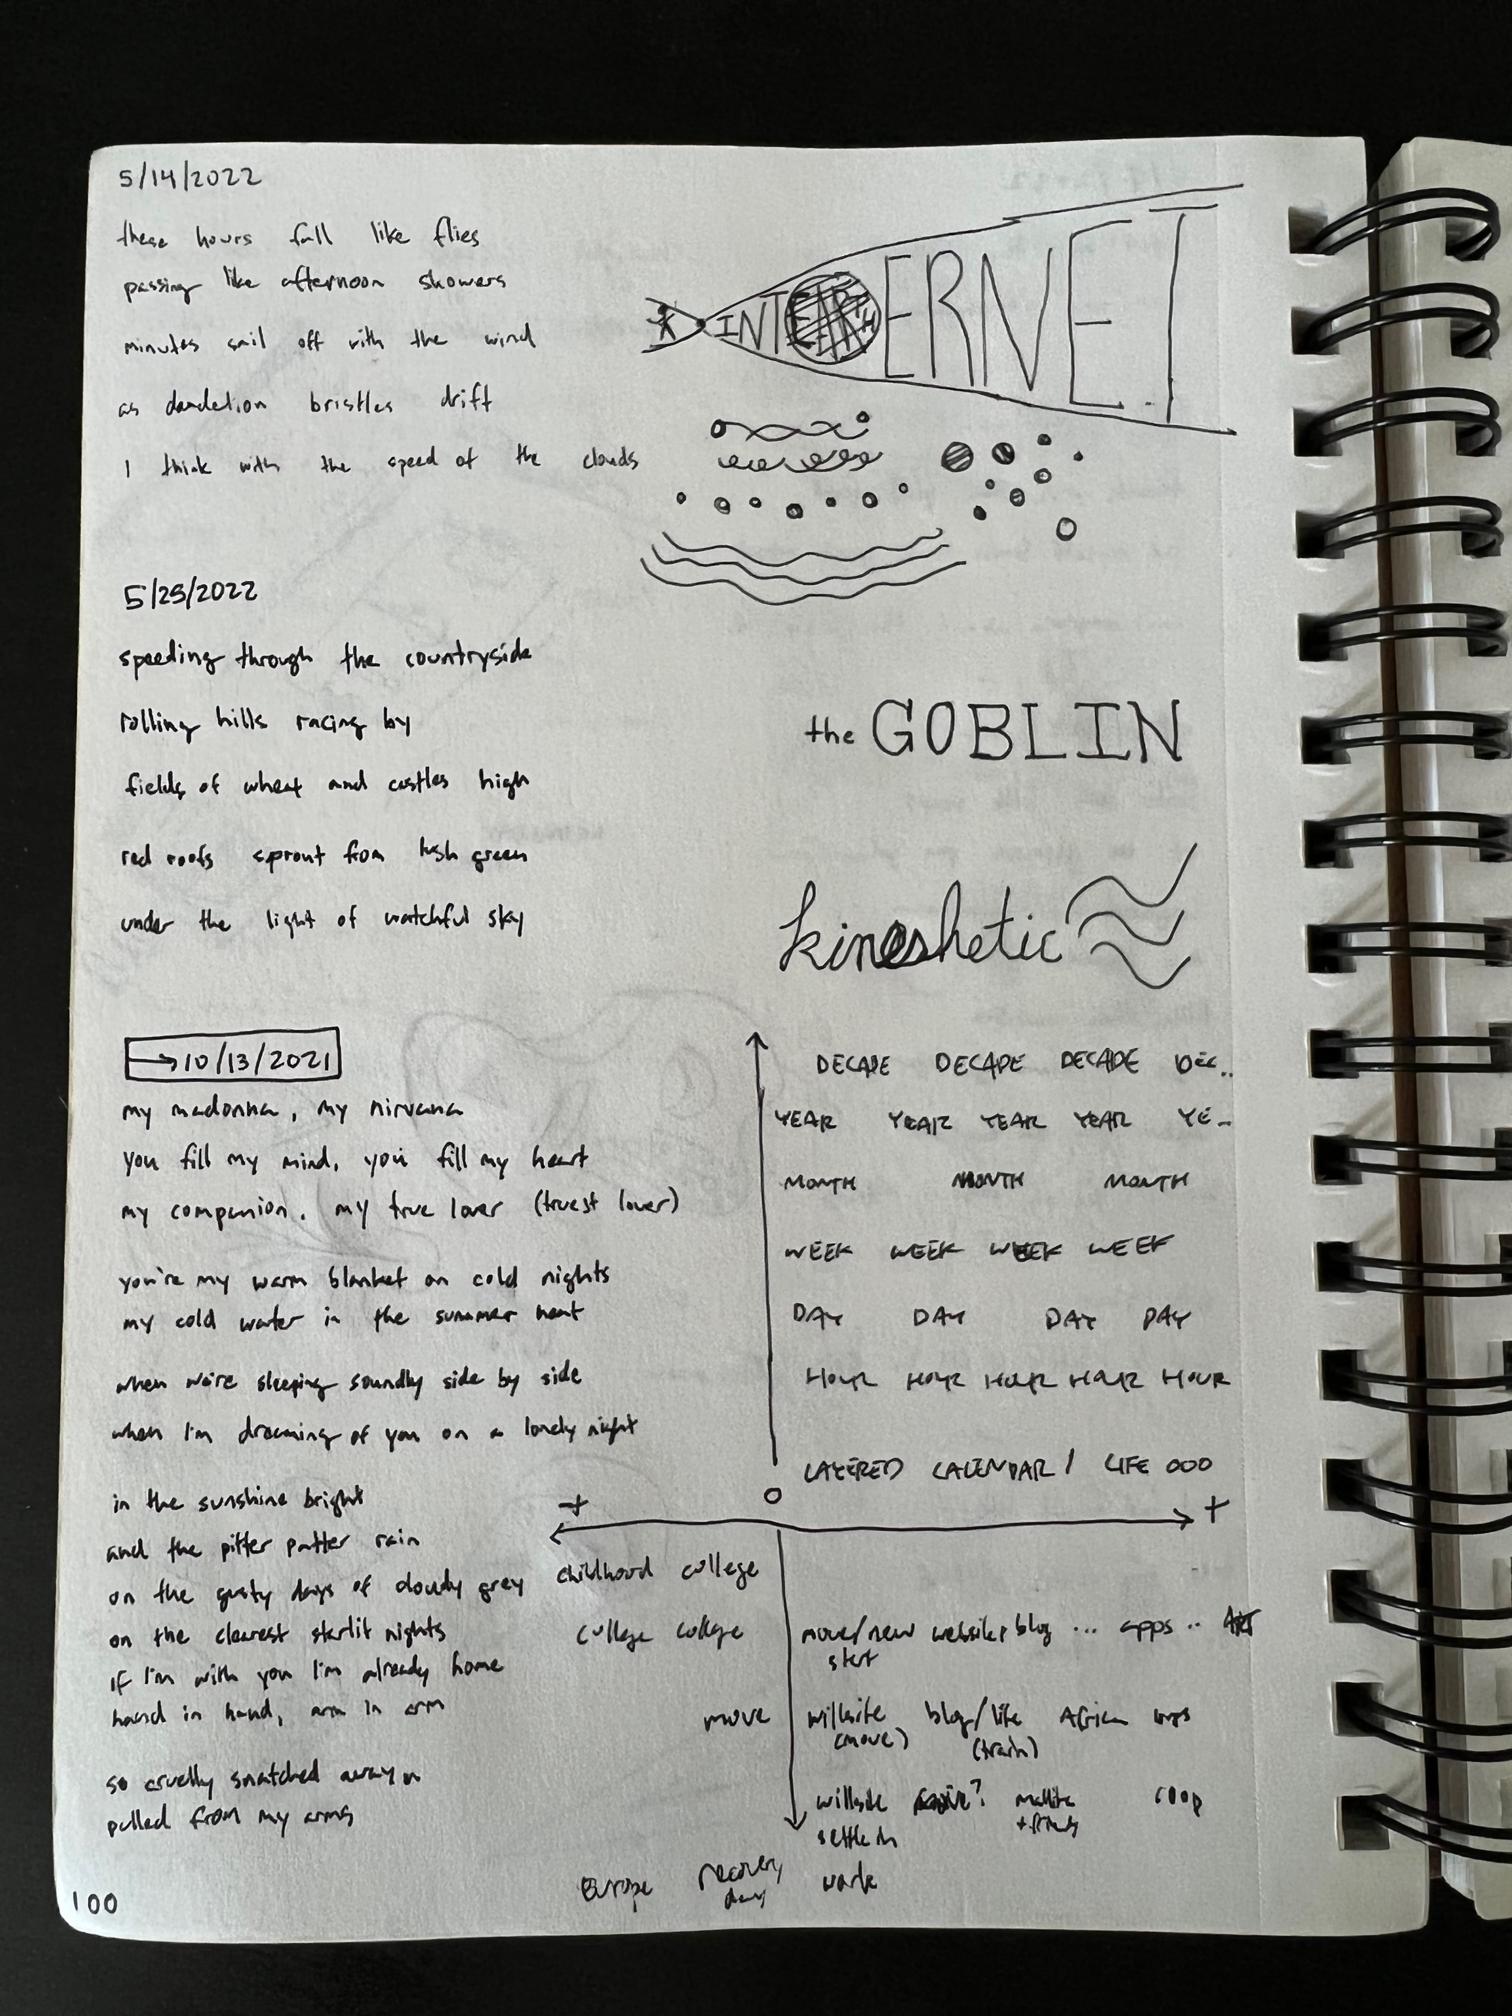 5/14/2022
these hours fall like flies
passing like afternoon showers
minutes sail off with the wind
as dandelion bristles drift
I think with the speed of the clouds
5/25/2022
speeding through the countryside
rolling hills racing by
fields of wheat and castles high
red roofs sprout from lush green
under the light of watchful sky
→10/13/2021
my madonna, my nirvana
you fill my mind, you fill my heart
my companion, my true lover (truest lover)
you're my warm blanket on cold nights
my cold water in the summer heat
when we're sleeping soundly side by side
when I'm dreaming of you on a lonely night
in the sunshine bright
and the pitter patter rain
on the gusty days of cloudy grey
on the clearest starlit nights
if I'm with you I'm already home
hand in hand, arm in arm
so cruelly snatched away
pulled from my arms
100
INTERNET
EARTH
the GOBLIN
kineshetic
DECADE DECADE DECADE DEC..
YEAR YEAR YEAR YEAR YE..
MONTH MONTH MONTH
WEEK WEEK WEEK WEEK
DAY DAY DAY DAY
HOUR HOUR HOUR HOUR HOUR
LAYERED CALENDAR / LIFE 000
0
+
childhood college
college college move/new website, blog ... apps .. ART
start
move willsite blog/life Africa
(move) (train)
willsite move? coop
settle in + friends
Europe recovery work
days